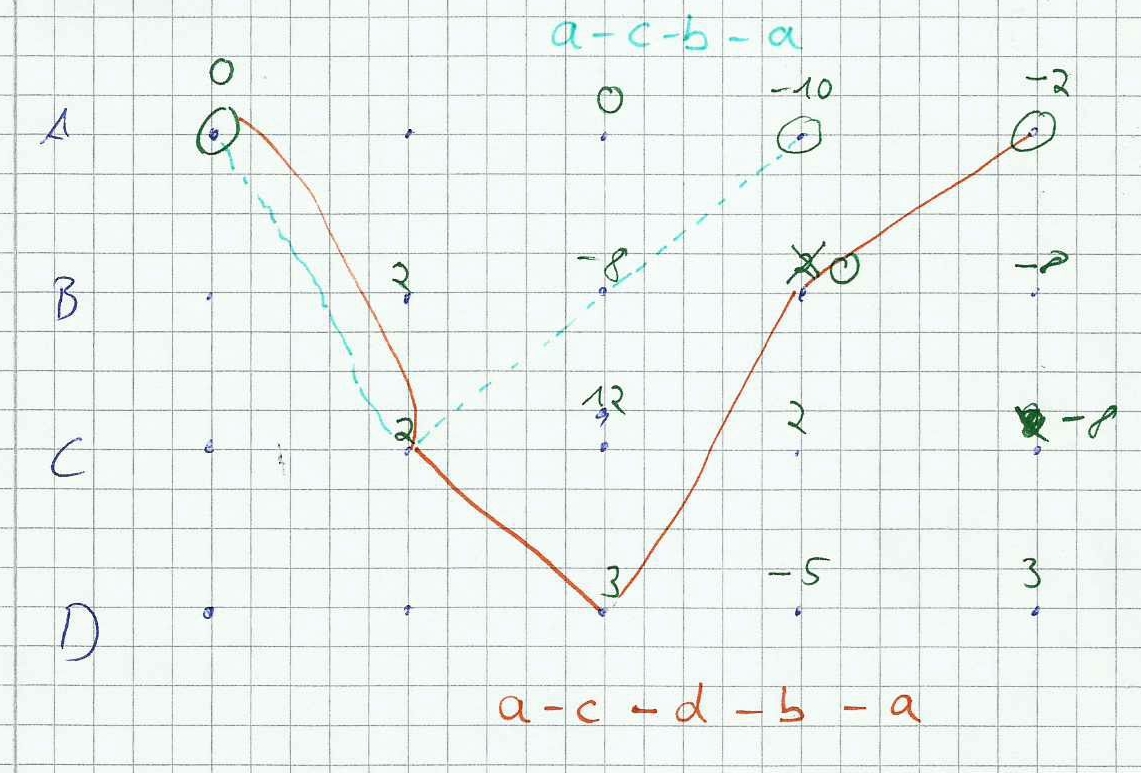 a - c - b - a
0 0 -10 -2
A
2 -8 0 -8
B
2 12 2 -8
C
3 -5 3
D
a - c - d - b - a